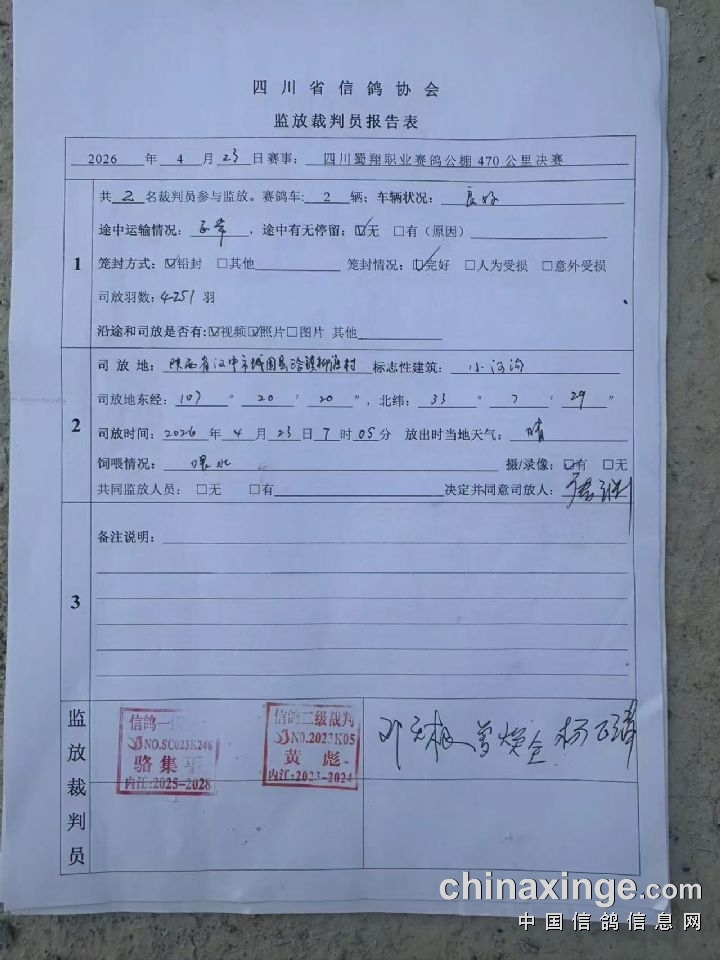 四川省信鸽协会
监放裁判员报告表
2026 年 4 月 23 日赛事： 四川蜀翔职业赛鸽公棚 470 公里决赛
1
共 2 名裁判员参与监放。赛鸽车: 2 辆; 车辆状况: 良好
途中运输情况: 正常 , 途中有无停留: ☑无 □有（原因）
笼封方式: ☑铅封 □其他 笼封情况: ☑完好 □人为受损 □意外受损
司放羽数: 4251 羽
沿途和司放是否有: ☑视频☑照片□图片 其他
2
司 放 地: 陕西省汉中市城固县 村 标志性建筑: 小河沟
司放地东经: 107 ° 20 ′ 20 ″, 北纬: 33 ° 7 ′ 29 ″
司放时间: 2026 年 4 月 23 日 7 时 05 分 放出时当地天气: 晴
饲喂情况: 喂水 摄/录像: ☑有 □无
共同监放人员: □无 □有 决定并同意司放人:
3
备注说明:
监放裁判员
信鸽一
NO.SC023K246
骆集平
内江:2025-2028
信鸽二级裁判
NO.2023K05
黄彪
内江:2023-2024
chinaxinge.com
中国信鸽信息网